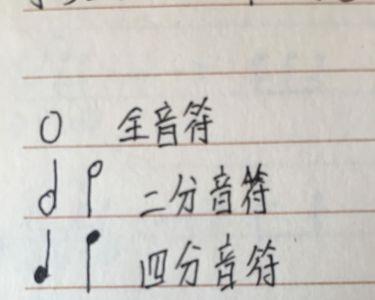 全音符
二分音符
四分音符